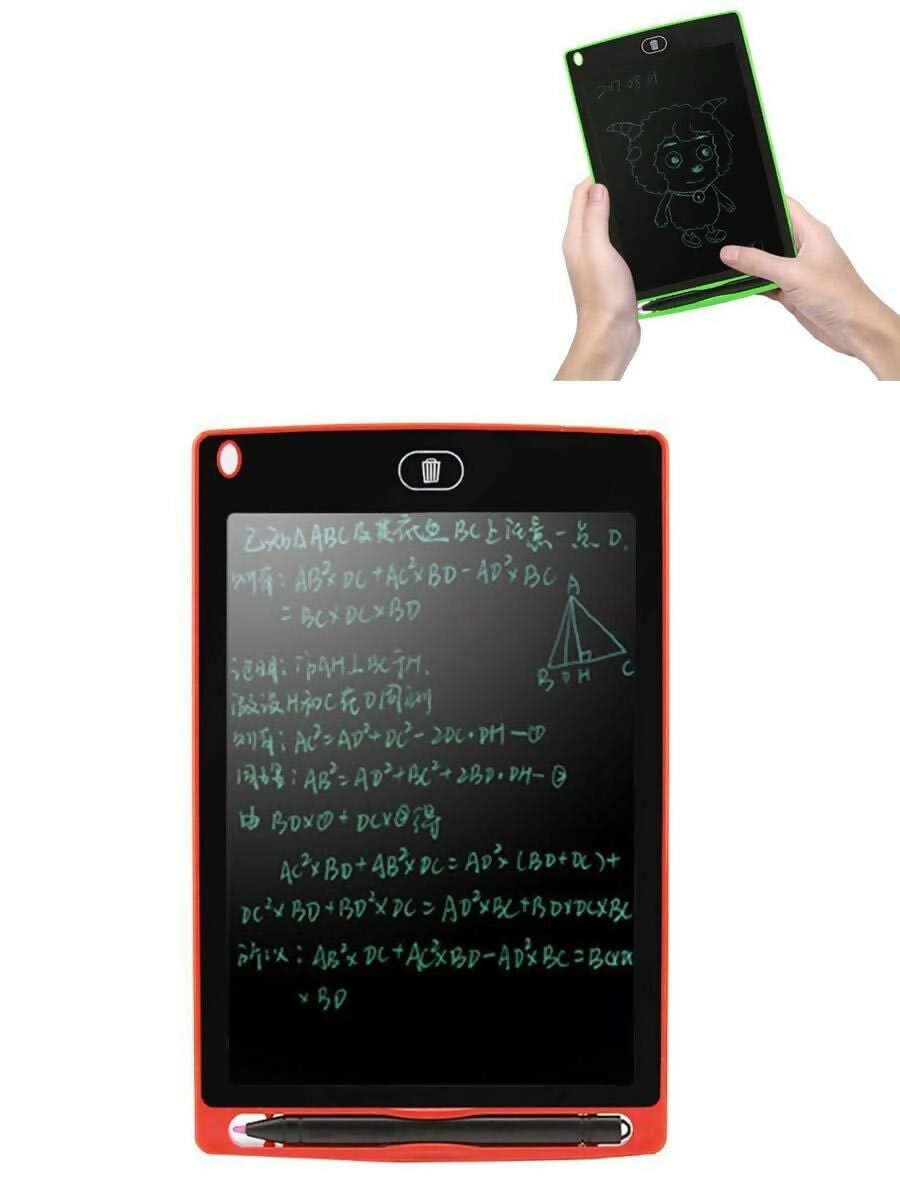 2017.08.01
已知△ABC及其底边BC上任意一点D.
则有: AB²×DC+AC²×BD-AD²×BC
=BC×DC×BD
A
B D H C
证明: 作AH⊥BC于H.
假设H和C在D同侧
则有: AC²=AD²+DC²-2DC·DH-①
同理: AB²=AD²+BC²+2BD·DH-②
由 BD×①+DC×②得
AC²×BD+AB²×DC=AD²×(BD+DC)+
DC²×BD+BD²×DC=AD²×BC+BD×DC×BC
所以: AB²×DC+AC²×BD-AD²×BC=BC×DC
×BD